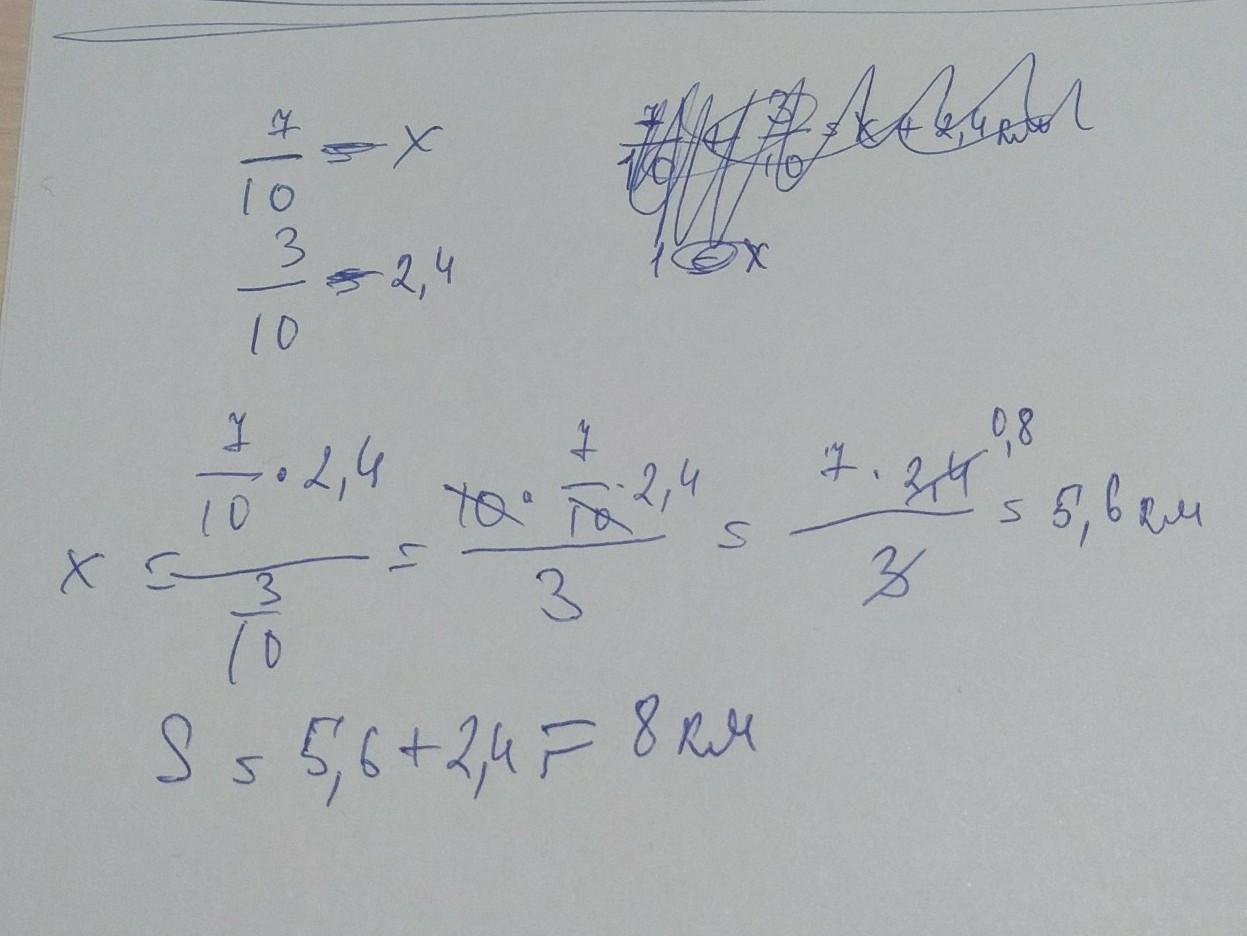 7/10 — x
3/10 — 2,4
x = (7/10 · 2,4)/(3/10) = (10 · 7/10 · 2,4)/3 = (7 · 2,4 0,8)/3 = 5,6 км
S = 5,6 + 2,4 = 8 км